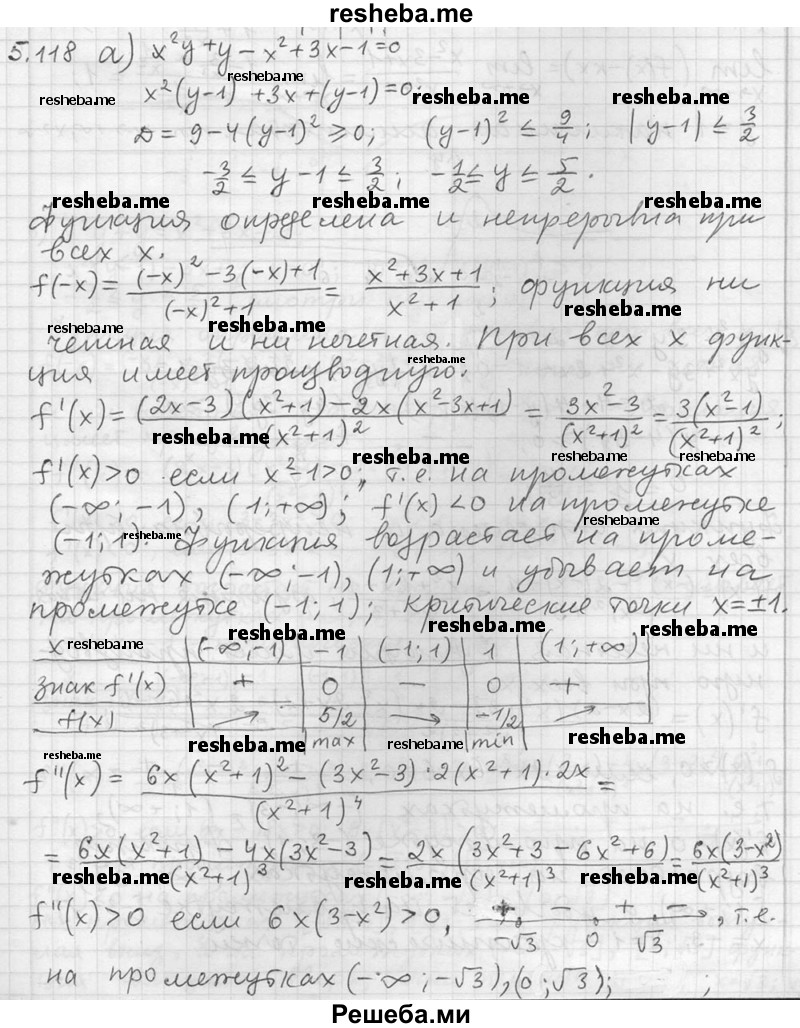 resheba.me
5.118 а) x²y + y − x² + 3x − 1 = 0
resheba.me
resheba.me x²(y−1) + 3x + (y−1) = 0; resheba.me resheba.me
D = 9 − 4(y−1)² ⩾ 0; (y−1)² ≤ 9/4; |y−1| ≤ 3/2
−3/2 ≤ y − 1 ≤ 3/2; −1/2 ≤ y ≤ 5/2.
resheba.me resheba.me resheba.me
Функция определена и непрерывна при
всех x.
f(−x) = ((−x)² − 3(−x) + 1)/((−x)² + 1) = (x² + 3x + 1)/(x² + 1); функция ни
resheba.me resheba.me resheba.me
четная и ни нечетная. При всех x функ-
resheba.me
ция имеет производную.
f'(x) = ((2x−3)(x²+1) − 2x(x²−3x+1))/(x²+1)² = (3x²−3)/(x²+1)² = 3(x²−1)/(x²+1)²;
resheba.me resheba.me resheba.me resheba.me
f'(x) > 0 если x²−1 > 0, т.е. на промежутках
(−∞; −1), (1; +∞); f'(x) < 0 на промежутке
resheba.me resheba.me
(−1; 1). Функция возрастает на проме-
жутках (−∞; −1), (1; +∞) и убывает на
промежутке (−1; 1); критические точки x = ±1.
resheba.me resheba.me resheba.me
x resheba.me (−∞; −1) −1 (−1; 1) 1 (1; +∞)
знак f'(x) + 0 − 0 +
f(x) → 5/2 → −1/2 →
resheba.me max resheba.me min resheba.me
resheba.me
f''(x) = (6x(x²+1)² − (3x²−3)·2(x²+1)·2x)/(x²+1)⁴ =
= (6x(x²+1) − 4x(3x²−3))/(x²+1)³ = 2x(3x²+3−6x²+6)/(x²+1)³ = 6x(3−x²)/(x²+1)³
resheba.me resheba.me resheba.me
f''(x) > 0 если 6x(3−x²) > 0, + − + − , т.е.
−√3 0 √3
на промежутках (−∞; −√3), (0; √3); ;
Решеба.ми